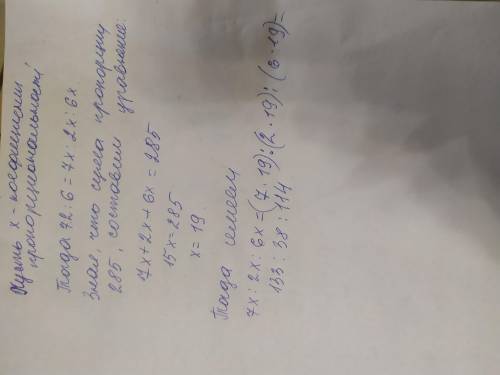 Пусть x - коэффициент
пропорциональности
Тогда 7:2:6 = 7x:2x:6x.
Зная, что сумма пропорции
285, составим уравнение:
7x+2x+6x=285
15x=285
x=19.
Тогда имеем
7x:2x:6x=(7·19):(2·19):(6·19)=
133:38:114